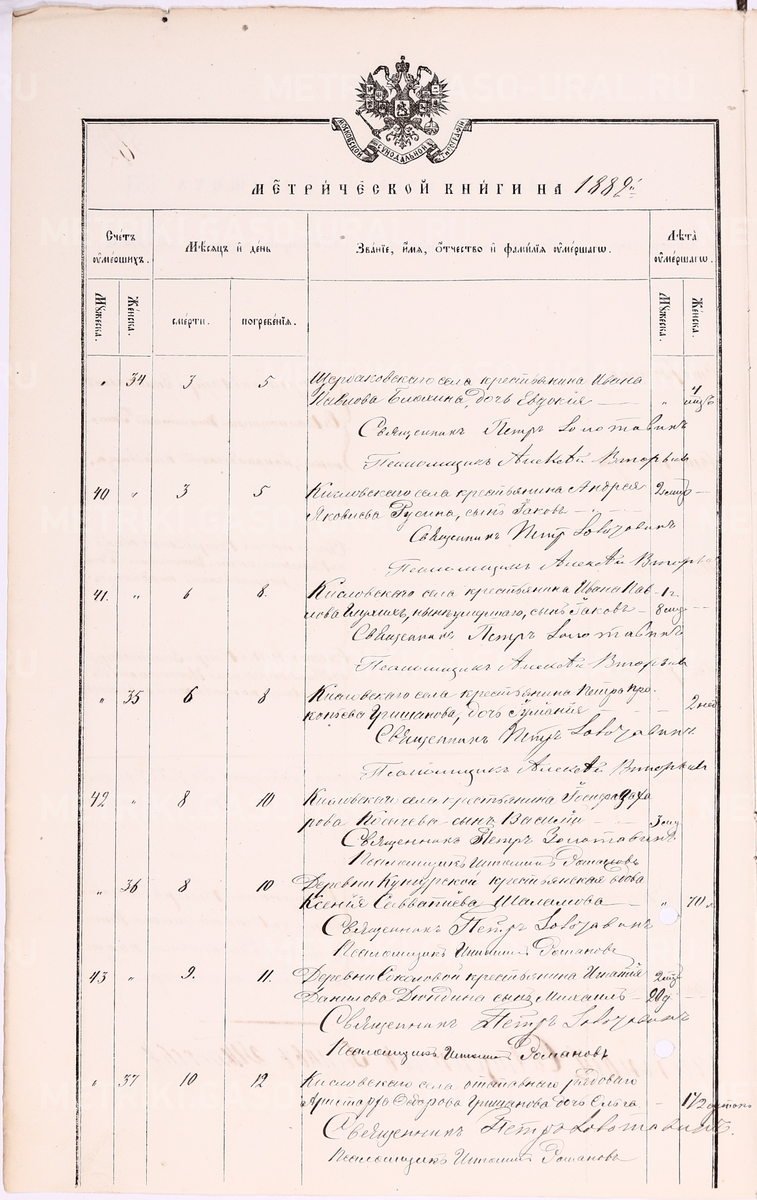 МОСКОВСКОЙ СѴНОДАЛЬНОЙ ТИПОГРАФІИ
МЕТРИЧЕСКОЙ КНИГИ НА 1882 г.
Счетъ умершихъ. Мѣсяцъ и день Званіе, имя, отчество и фамилія умершаго. Лѣта умершаго.
Мужеска. Женска. смерти. погребенія. Мужеска. Женска.
„ 34 3 5 Щербаковскаго села крестьянина Ивана
Павлова Блохина, дочь Евдокія „ 4 мѣс.
Священникъ Петръ Золотавинъ
Псаломщикъ Алексѣй Вторыхъ
40 „ 3 5 Кисловскаго села крестьянина Андрея
Яковлева Русина, сынъ Іаковъ
Священникъ Петръ Золотавинъ
Псаломщикъ Алексѣй Вторыхъ
41. „ 6 8. Кисловскаго села крестьянина Ивана Пав- 1 г.
лова сынъ Іаковъ 8 мѣс.
Священникъ Петръ Золотавинъ
Псаломщикъ Алексѣй Вторыхъ
„ 35 6 8 Кисловскаго села крестьянина Петра Про-
копьева Гришанова, дочь 2 нед.
Священникъ Петръ Золотавинъ
Псаломщикъ Алексѣй Вторыхъ
42 „ 8 10 Кисловскаго села крестьянина
сынъ Василій 3 мѣс.
Священникъ Петръ Золотавинъ.
Псаломщикъ Романовъ
„ 36 8 10 Деревни Кунгурской крестьянская вдова
Ксенія Савватіева Шаламова „ 70 л.
Священникъ Петръ Золотавинъ
Псаломщикъ Романовъ
43 „ 9. 11. Деревни крестьянина
Данилова сынъ Михаилъ 20 д.
Священникъ Петръ Золотавинъ
Псаломщикъ Романовъ
„ 37 10 12 Кисловскаго села отставнаго рядоваго
Аристарха Гришанова дочь Ольга 1 1/2
Священникъ Петръ Золотавинъ.
Псаломщикъ Романовъ